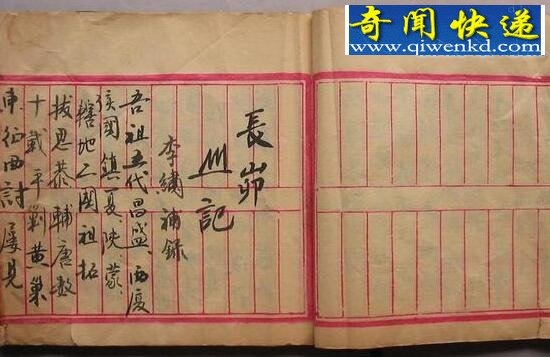 奇闻快递
www.qiwenkd.com
長峁
記
李繡補錄
吾祖五代昌盛西夏
國鎮夏、陝、蒙、
轄地祖拓
拔思恭輔唐數
十載平剿黃巢
東征西討屢見